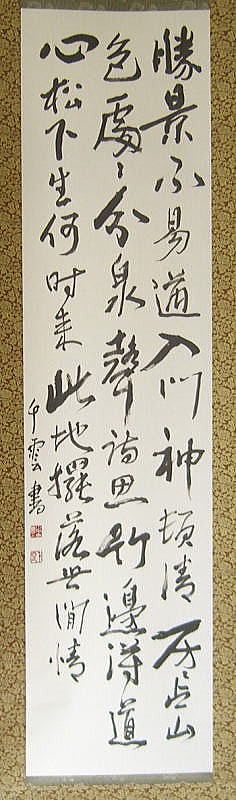 勝景不易遇入門神頓清房〻占山
色處〻分泉聲詩思竹邊得道
心松下生何时来此地擺落世間情
千雲書